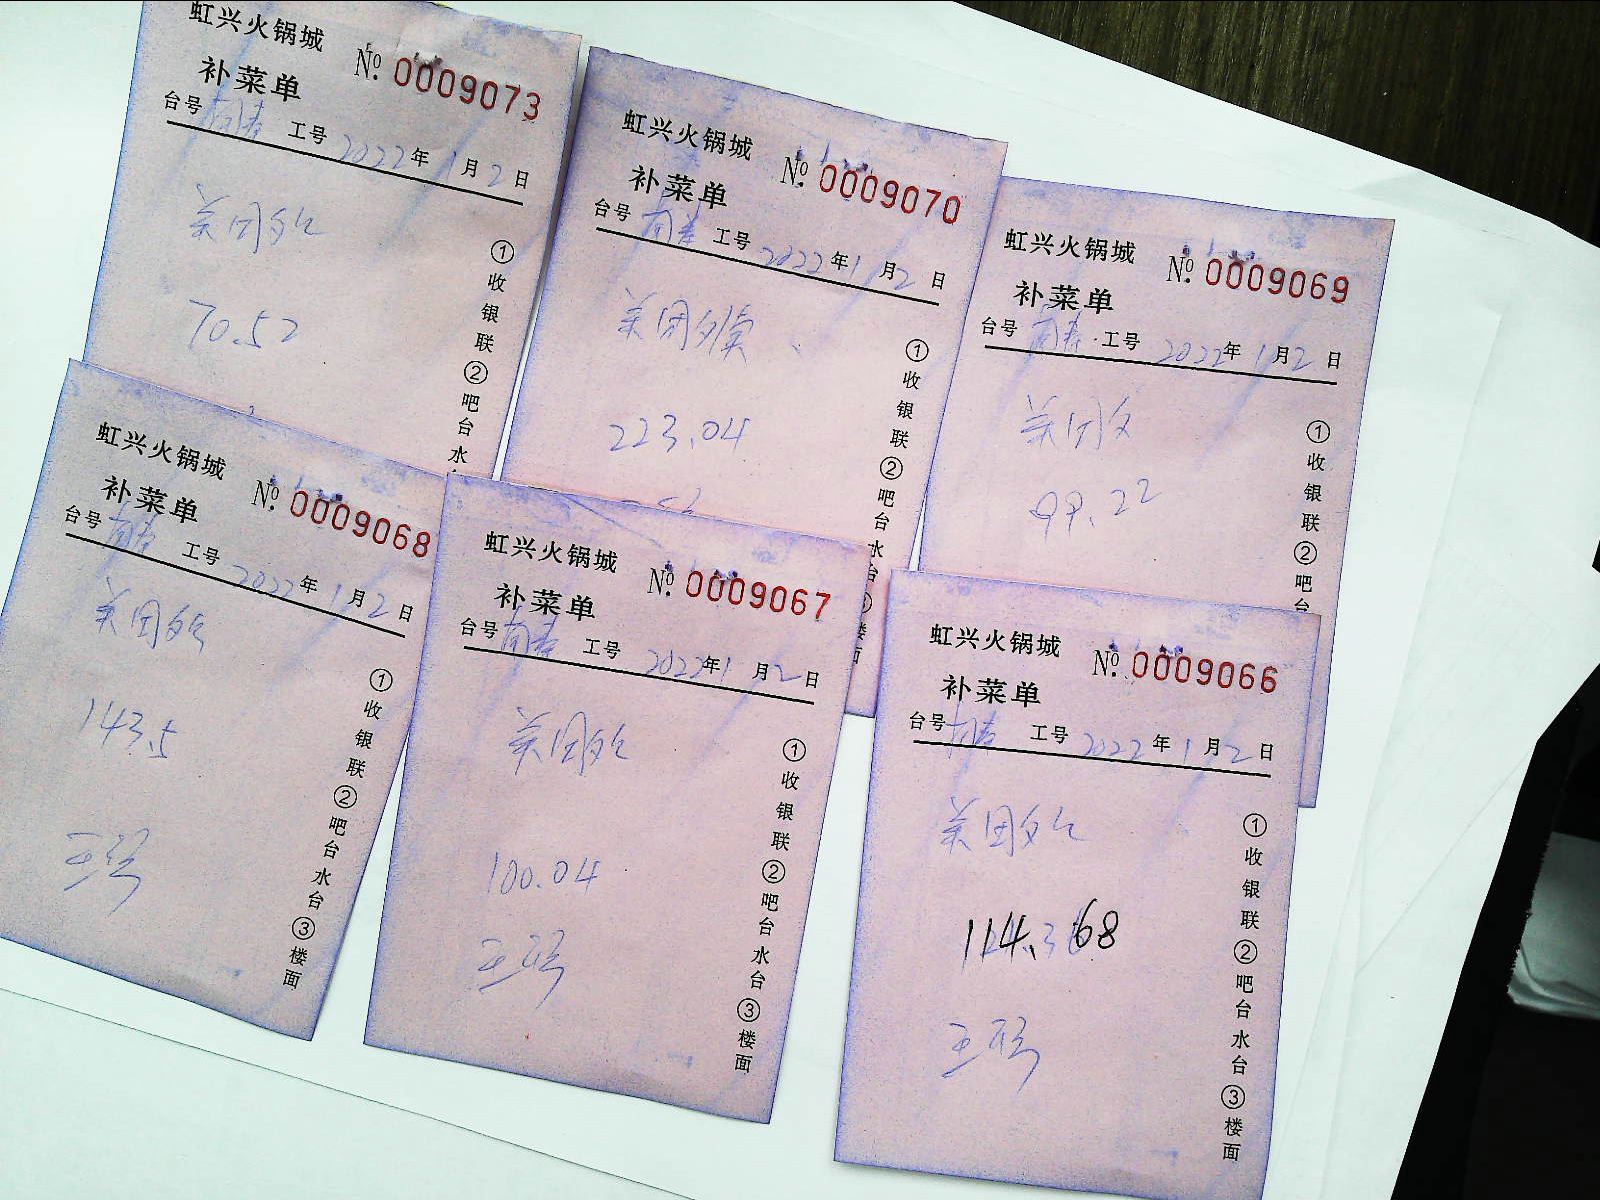 虹兴火锅城
补菜单 Nº 0009073
台号 南春 工号 2022年1月2日
美团外卖
70.52
①收银联②吧台水
虹兴火锅城
补菜单 Nº 0009070
台号 南春 工号 2022年1月2日
美团外卖
223.04
①收银联②吧台水台③楼面
虹兴火锅城
补菜单 Nº 0009069
台号 南春 工号 2022年1月2日
美团外
99.22
①收银联②吧台
虹兴火锅城
补菜单 Nº 0009068
台号 南春 工号 2022年1月2日
美团外卖
143.5
①收银联②吧台水台③楼面
虹兴火锅城
补菜单 Nº 0009067
台号 南春 工号 2022年1月2日
美团外卖
100.04
①收银联②吧台水台③楼面
虹兴火锅城
补菜单 Nº 0009066
台号 南春 工号 2022年1月2日
美团外卖
114.68
①收银联②吧台水台③楼面